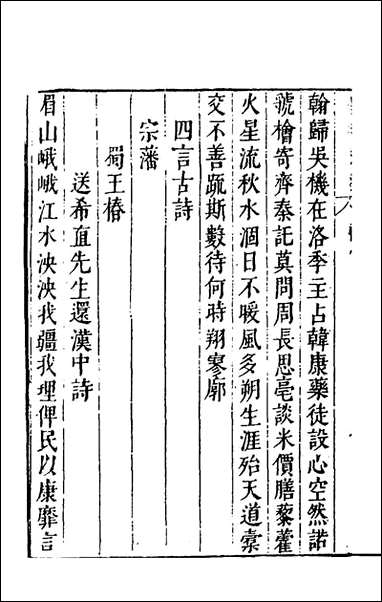 翰歸吳機在洛季主占韓康藥徒設心空然諾
虢檜寄齊秦託莫問周長思亳談米價膳藜藿
火星流秋水涸日不暖風多朔生涯殆天道橐
交不善䟽斯數待何時翔寥廓
四言古詩
宗藩
蜀王椿
送希直先生還漢中詩
眉山峨峨江水泱泱我疆我理俾民以康靡言